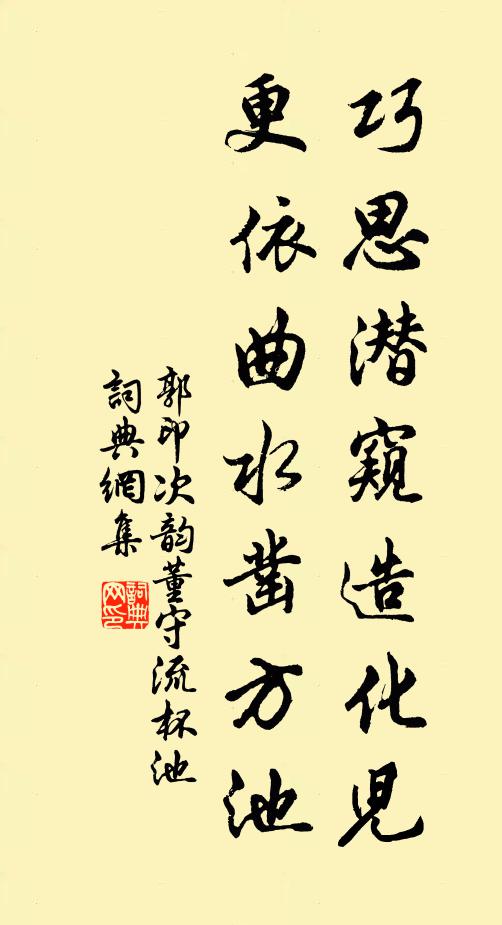 巧思潜窺造化兒
更依曲水凿方池
郭印次韵董守流杯池
詞典網集
詞典网印